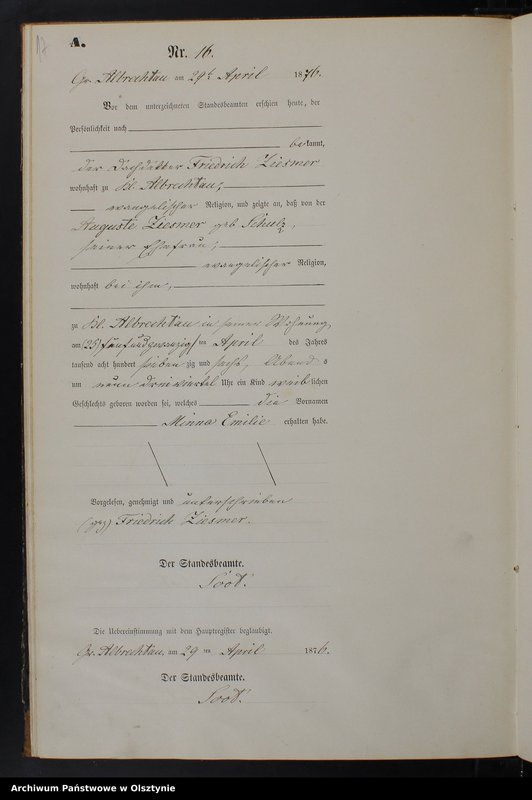 17
A.
Nr. 16.
Gr. Albrechtau am 29t April 1876.
Vor dem unterzeichneten Standesbeamten erschien heute, der
Persönlichkeit nach
bekannt,
der Dachdecker Friedrich Ziesmer
wohnhaft zu Kl. Albrechtau,
evangelischer Religion, und zeigte an, daß von der
Auguste Ziesmer geb Schulz,
seiner Ehefrau,
evangelischer Religion,
wohnhaft bei ihm,
zu Kl. Albrechtau in seiner Wohnung
am (25) fünfundzwanzig ten April des Jahres
tausend acht hundert sieben zig und sechs, Abend s
um neun dreiviertel Uhr ein Kind weib lichen
Geschlechts geboren worden sei, welches die Vornamen
Minna Emilie erhalten habe.
Vorgelesen, genehmigt und unterschrieben
(gez) Friedrich Ziesmer.
Der Standesbeamte.
Soot.
Die Uebereinstimmung mit dem Hauptregister beglaubigt.
Gr. Albrechtau, am 29 ten April 1876.
Der Standesbeamte.
Soot.
Archiwum Państwowe w Olsztynie